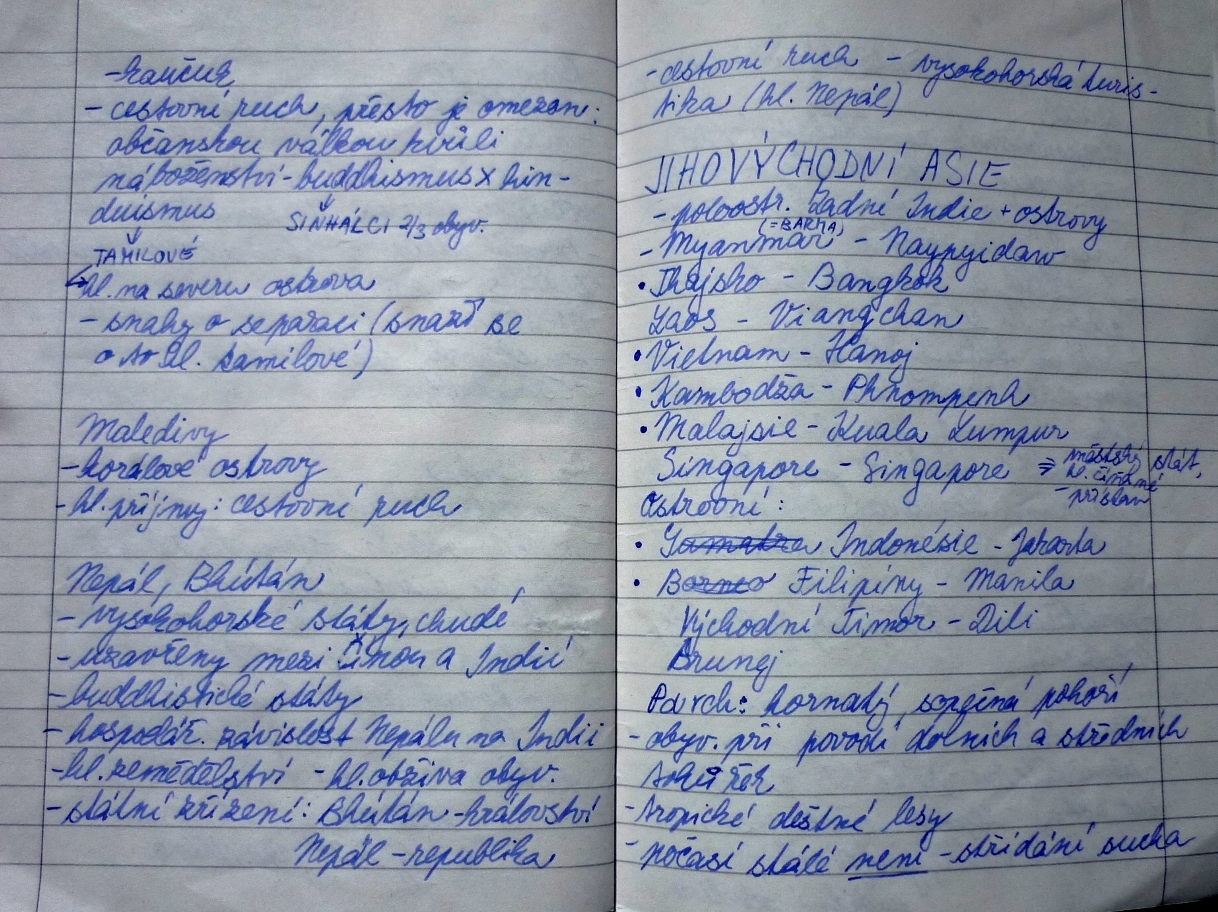 - kaučuk
- cestovní ruch, přesto je omezen:
občanskou válkou kvůli
náboženství - buddhismus x hin-
duismus
SINHÁLCI 2/3 obyv.
TAMILOVÉ
hl. na severu ostrova
- snahy o separaci (snaží se
o to hl. tamilové)
Maledivy
- korálové ostrovy
- hl. příjmy: cestovní ruch
Nepál, Bhútán
- vysokohorské státy, chudé
- uzavřeny mezi Čínou a Indií
- buddhistické státy
- hospodář. závislost Nepálu na Indii
- hl. zemědělství - hl. obživa obyv.
- státní zřízení: Bhútán - království
Nepál - republika
- cestovní ruch - vysokohorská turis-
tika (hl. Nepál)
JIHOVÝCHODNÍ ASIE
- poloostr. Zadní Indie + ostrovy
(=BARMA)
- Myanmar - Naypyidaw
• Thajsko - Bangkok
Laos - Viangchan
• Vietnam - Hanoj
• Kambodža - Phnompenh
• Malajsie - Kuala Lumpur
Singapore - Singapore ⇒ městský stát,
hl. číňané
- přístav
Ostrovní:
• Indonésie - Jakarta
• Borneo Filipíny - Manila
Východní Timor - Dili
Brunej
Povrch: hornatý, sopečná pohoří
- obyv. při povodí dolních a středních
toků řek
- tropické deštné lesy
- počasí stálé není - střídání sucha